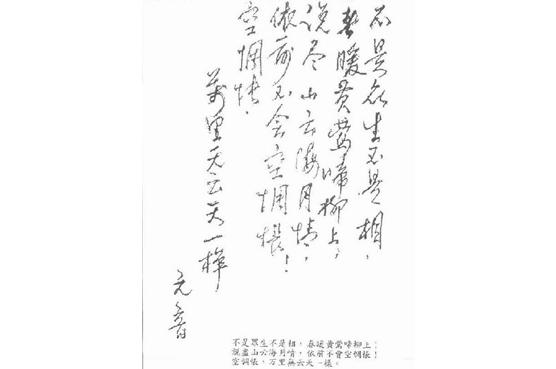 不是众生不是相，
春暖黄莺啼柳上，
说尽山云海月情，
依前不会空惆怅！
空惆怅！
萬里无云天一样
元音
不是眾生不是相，春暖黃鶯啼柳上！
說盡山云海月情，依前不會空惆悵！
空惆悵，万里無云天一樣。